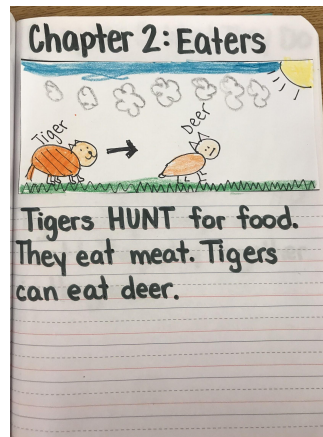 Chapter 2: Eaters
Tiger
Deer
Tigers HUNT for food.
They eat meat. Tigers
can eat deer.